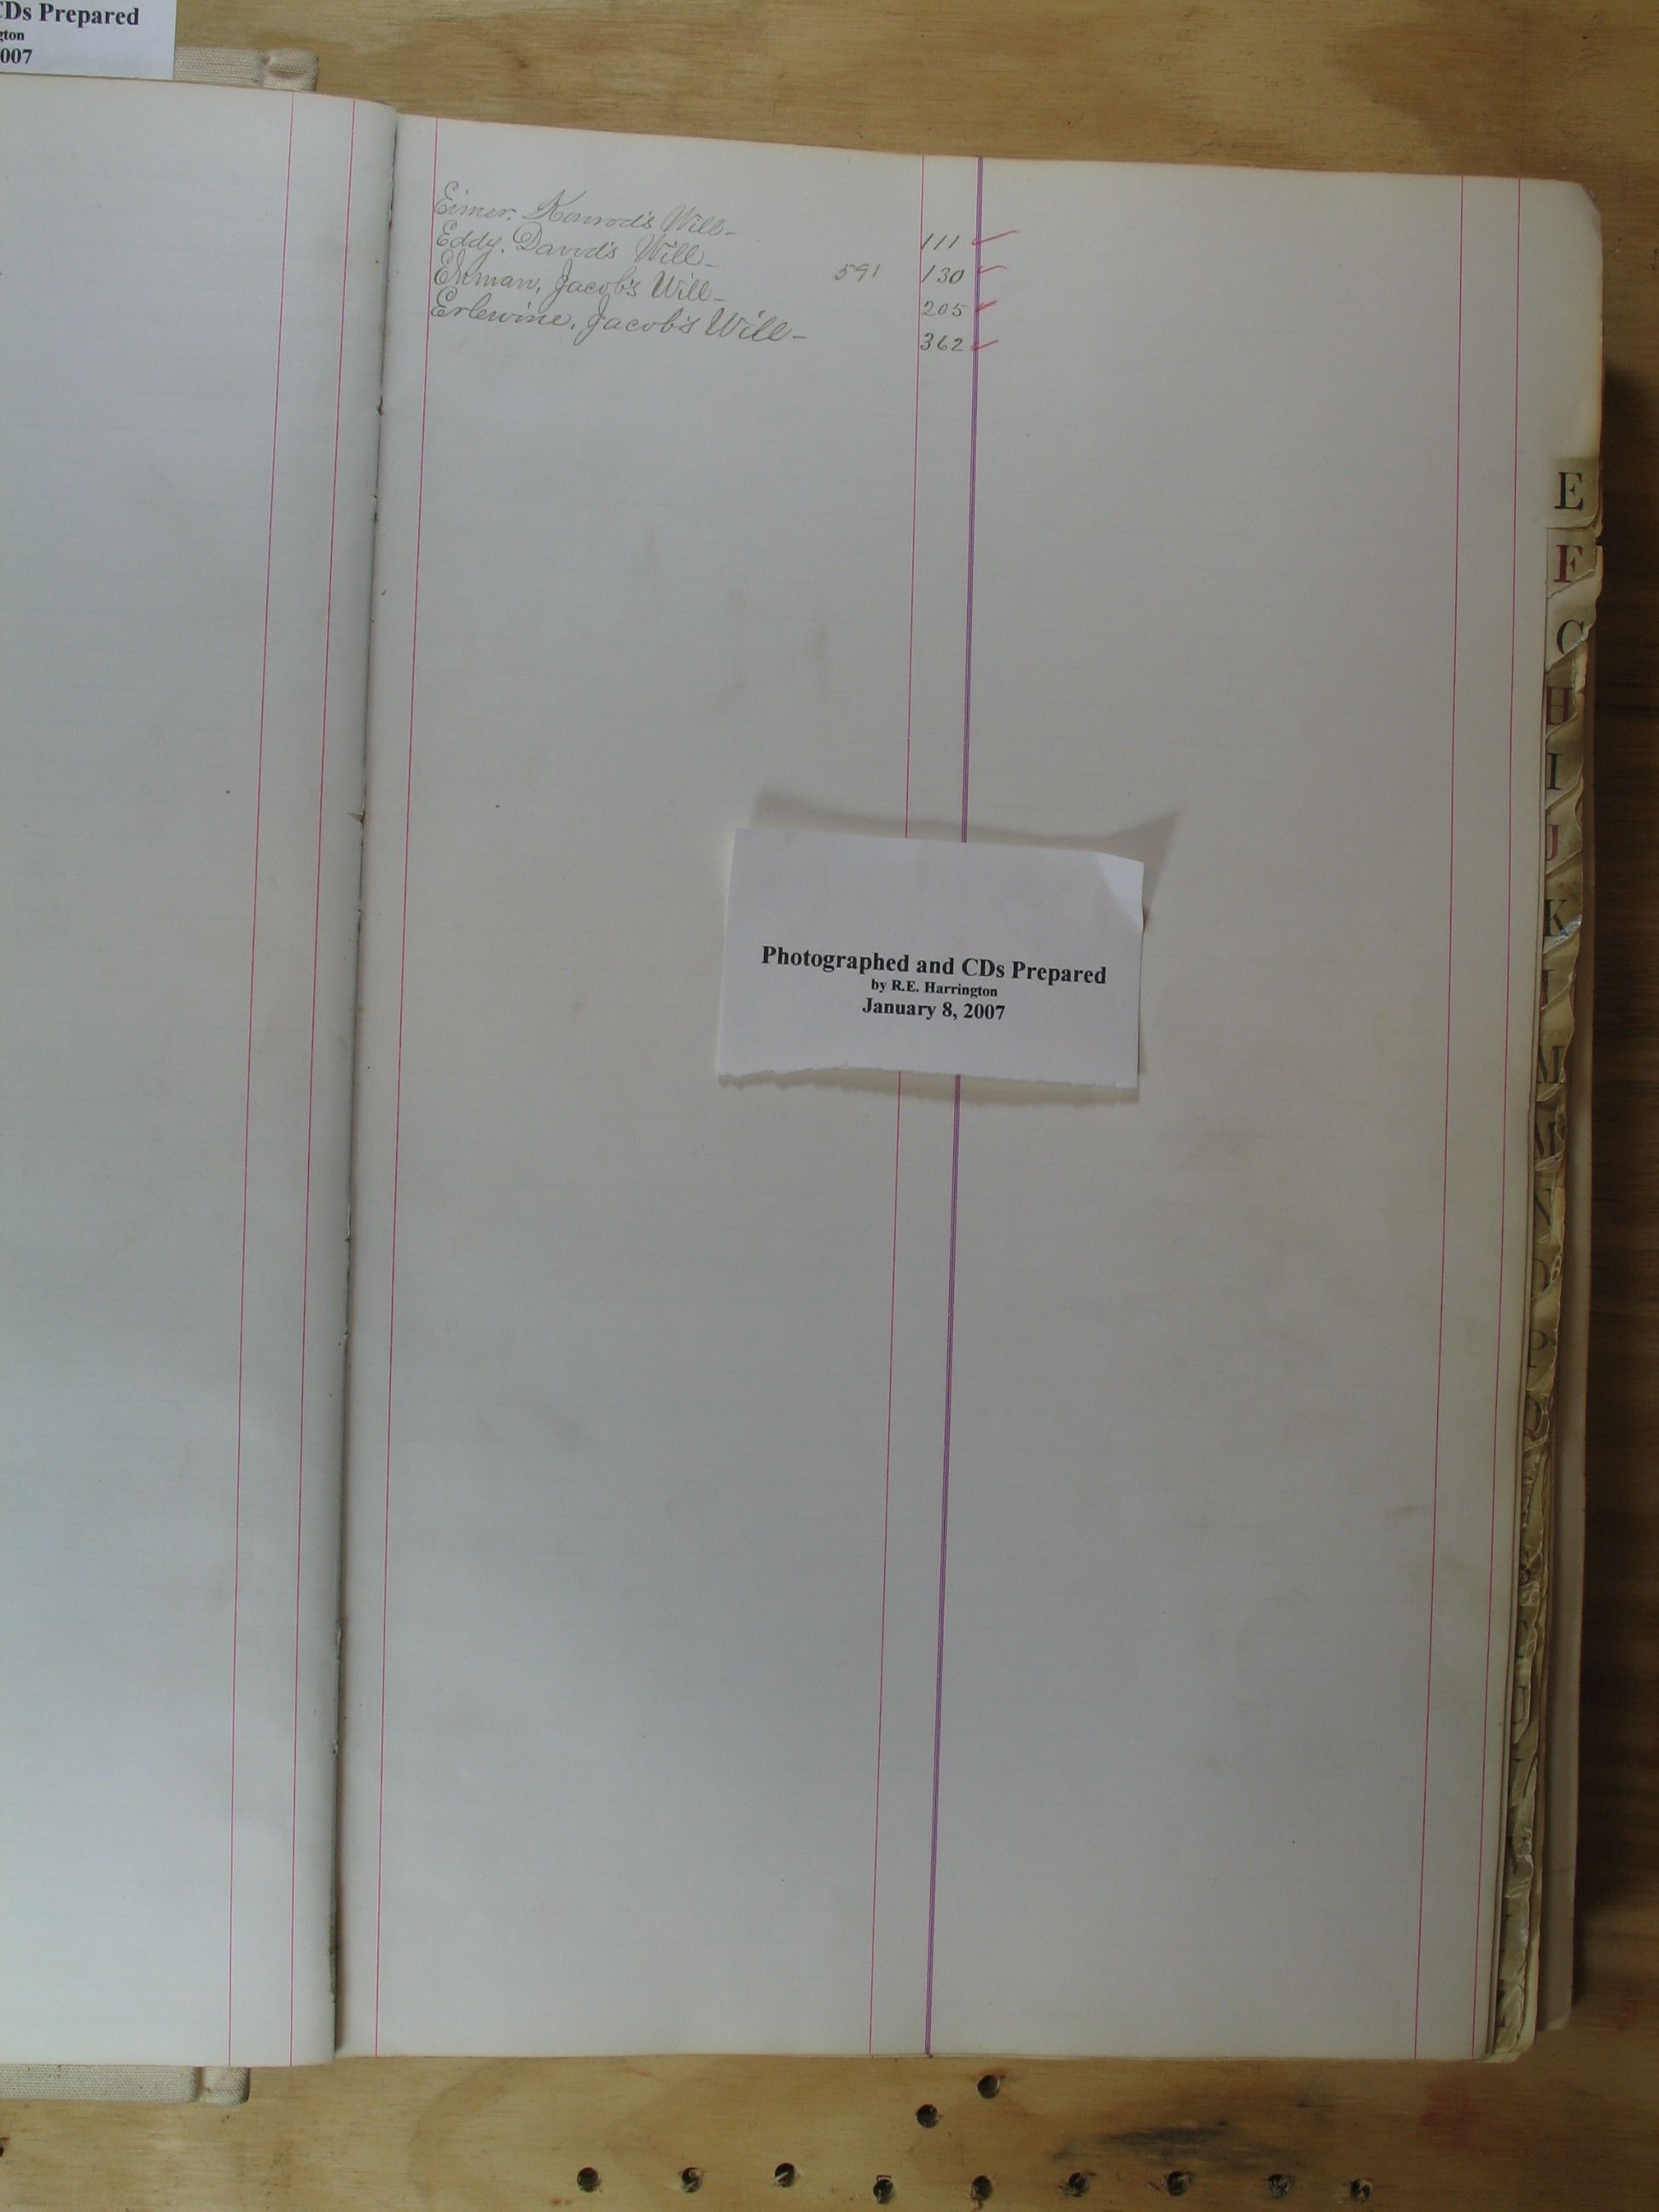 CDs Prepared
gton
007
Eimer, Konrod's Will - 111
Eddy, David's Will - 591 130
Ehman, Jacob's Will - 205
Erlewine, Jacob's Will - 362
E
F
G
H
I
J
K
L
M
Photographed and CDs Prepared
by R.E. Harrington
January 8, 2007